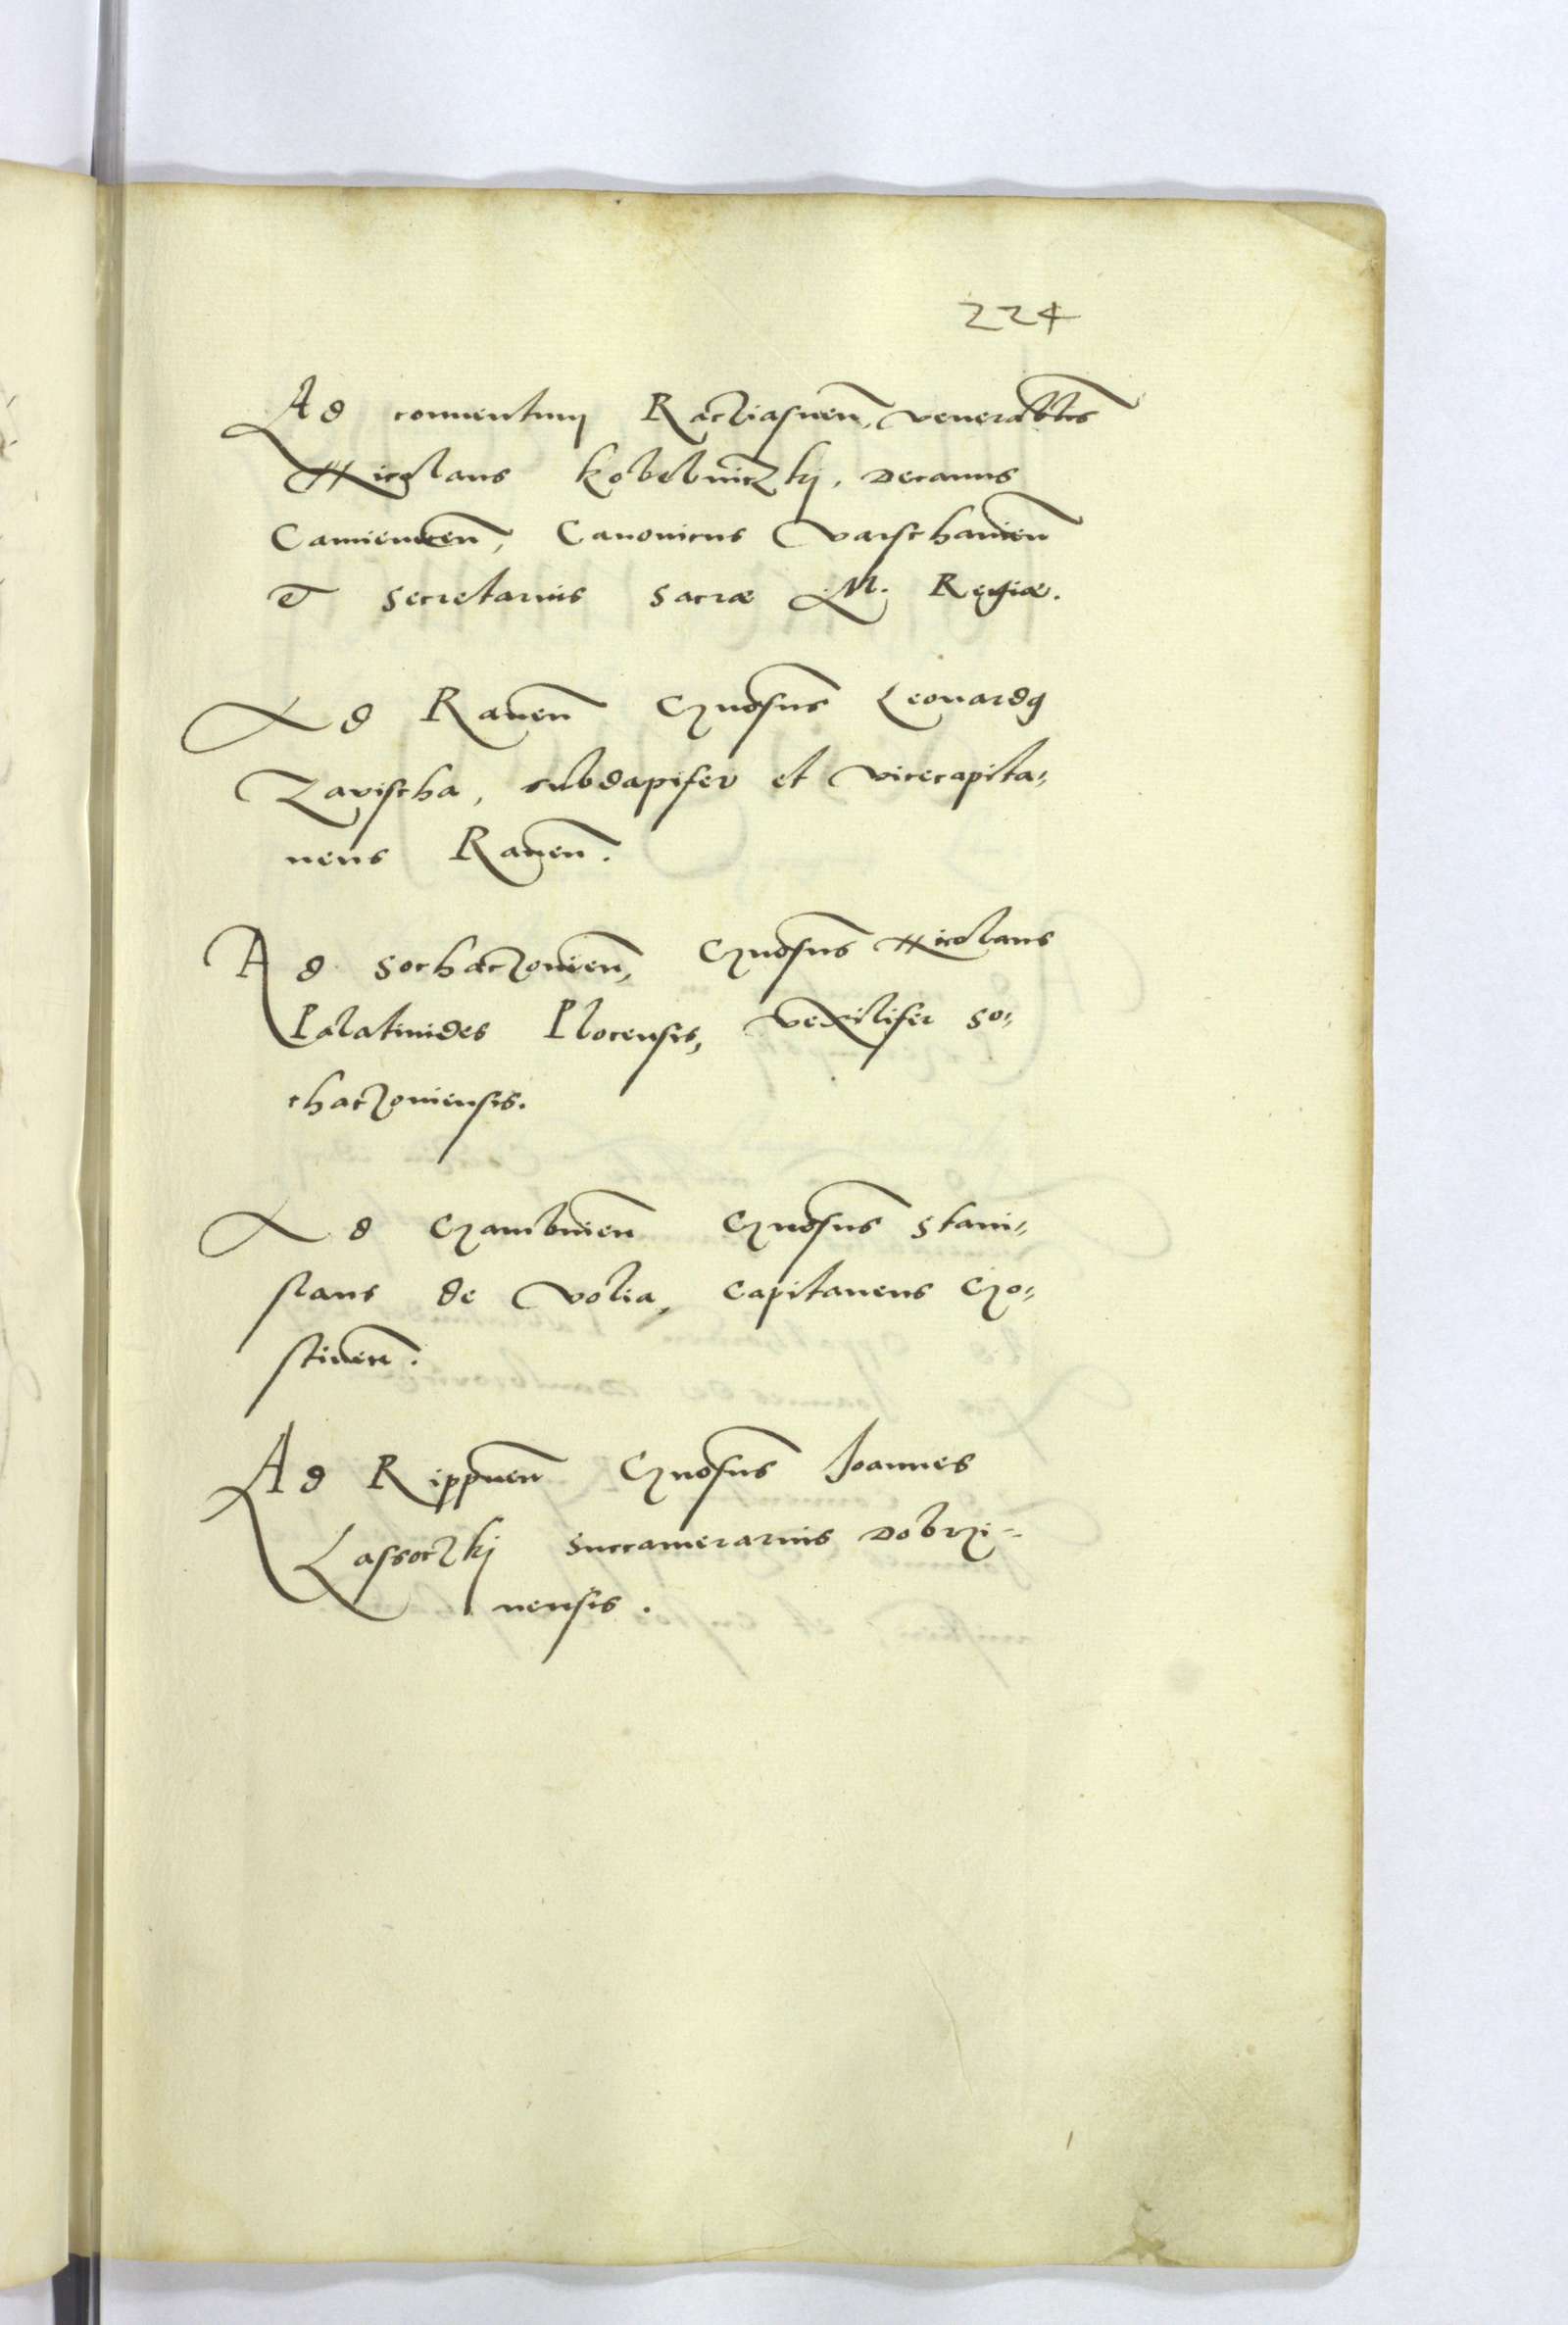 224
Ad conuentum Racziasnen̄, venerabl̄is
Nicolaus Kobelniczkj, Decanus
Camienecen̄, Canonicus Varschauien̄
et Secretarius Sacræ M. Regiæ.
Ad Rauen̄ G̃nosus Leonardꝰ
Zavischa, subdapifer et vicecapita„
neus Rauen̄.
Ad Sochaczouien̄, G̃nosus Nicolaus
Palatinides Plocensis, Vexilifer So„
chaczouiensis.
Ad Gzambinien̄ G̃nosus Stani„
slaus de Volia, Capitaneus Gzo„
stinen̄.
Ad Rippnen̄ G̃nosus Joannes
Lassoczkj Succamerarius Dobrzi„
nensis.